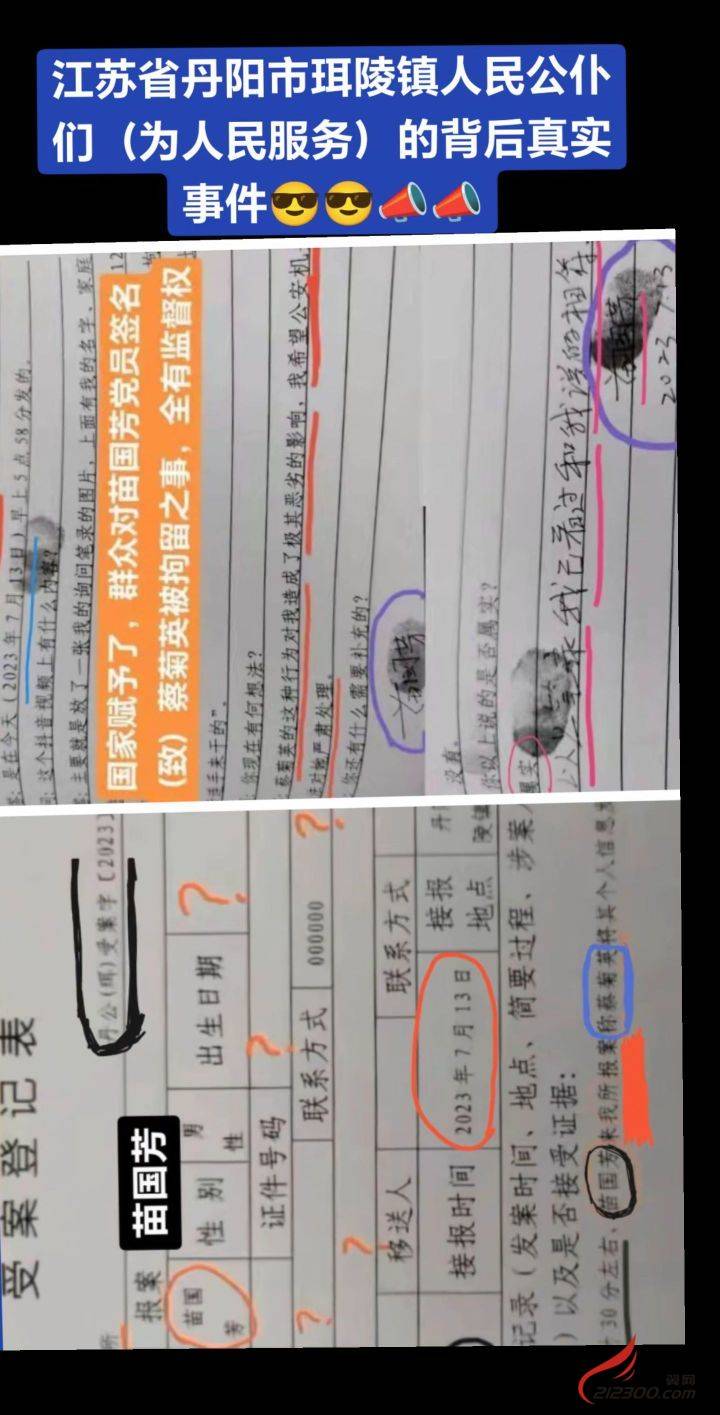 江苏省丹阳市珥陵镇人民公仆
们（为人民服务）的背后真实
事件😎😎📣📣
答：是在今天（2023年7月13日）早上5点58分发的。
问：这个抖音视频上有什么内容？
答：主要就是放了一张我的询问笔录的图片，上面有我的名字、家庭
12
国家赋予了，群众对苗国芳党员签名
(致）蔡菊英被拘留之事，全有监督权
手来干的”。
：你现在有何想法？
蔡菊英的这种行为对我造成了极其恶劣的影响，我希望公安机
对她严肃处理。
你还有什么需要补充的？
苗国芳
没有。
你以上说的是否属实？
属实
录我已看过和我说的相符
苗国芳
2023.7.13
受案登记表
丹公(珥)受案字〔2023〕
所
苗国芳
报案
苗国芳 性别 男性 出生日期 ？
证件号码 ？
？ 联系方式 000000 ？
？
移送人 联系方式 丹
接报时间 2023年7月13日 接报地点 陵镇
记录（发案时间、地点、简要过程、涉案
）以及是否接受证据：
30分左右，苗国芳来我所报案称蔡菊英将其个人信息发
翼网
212300.com